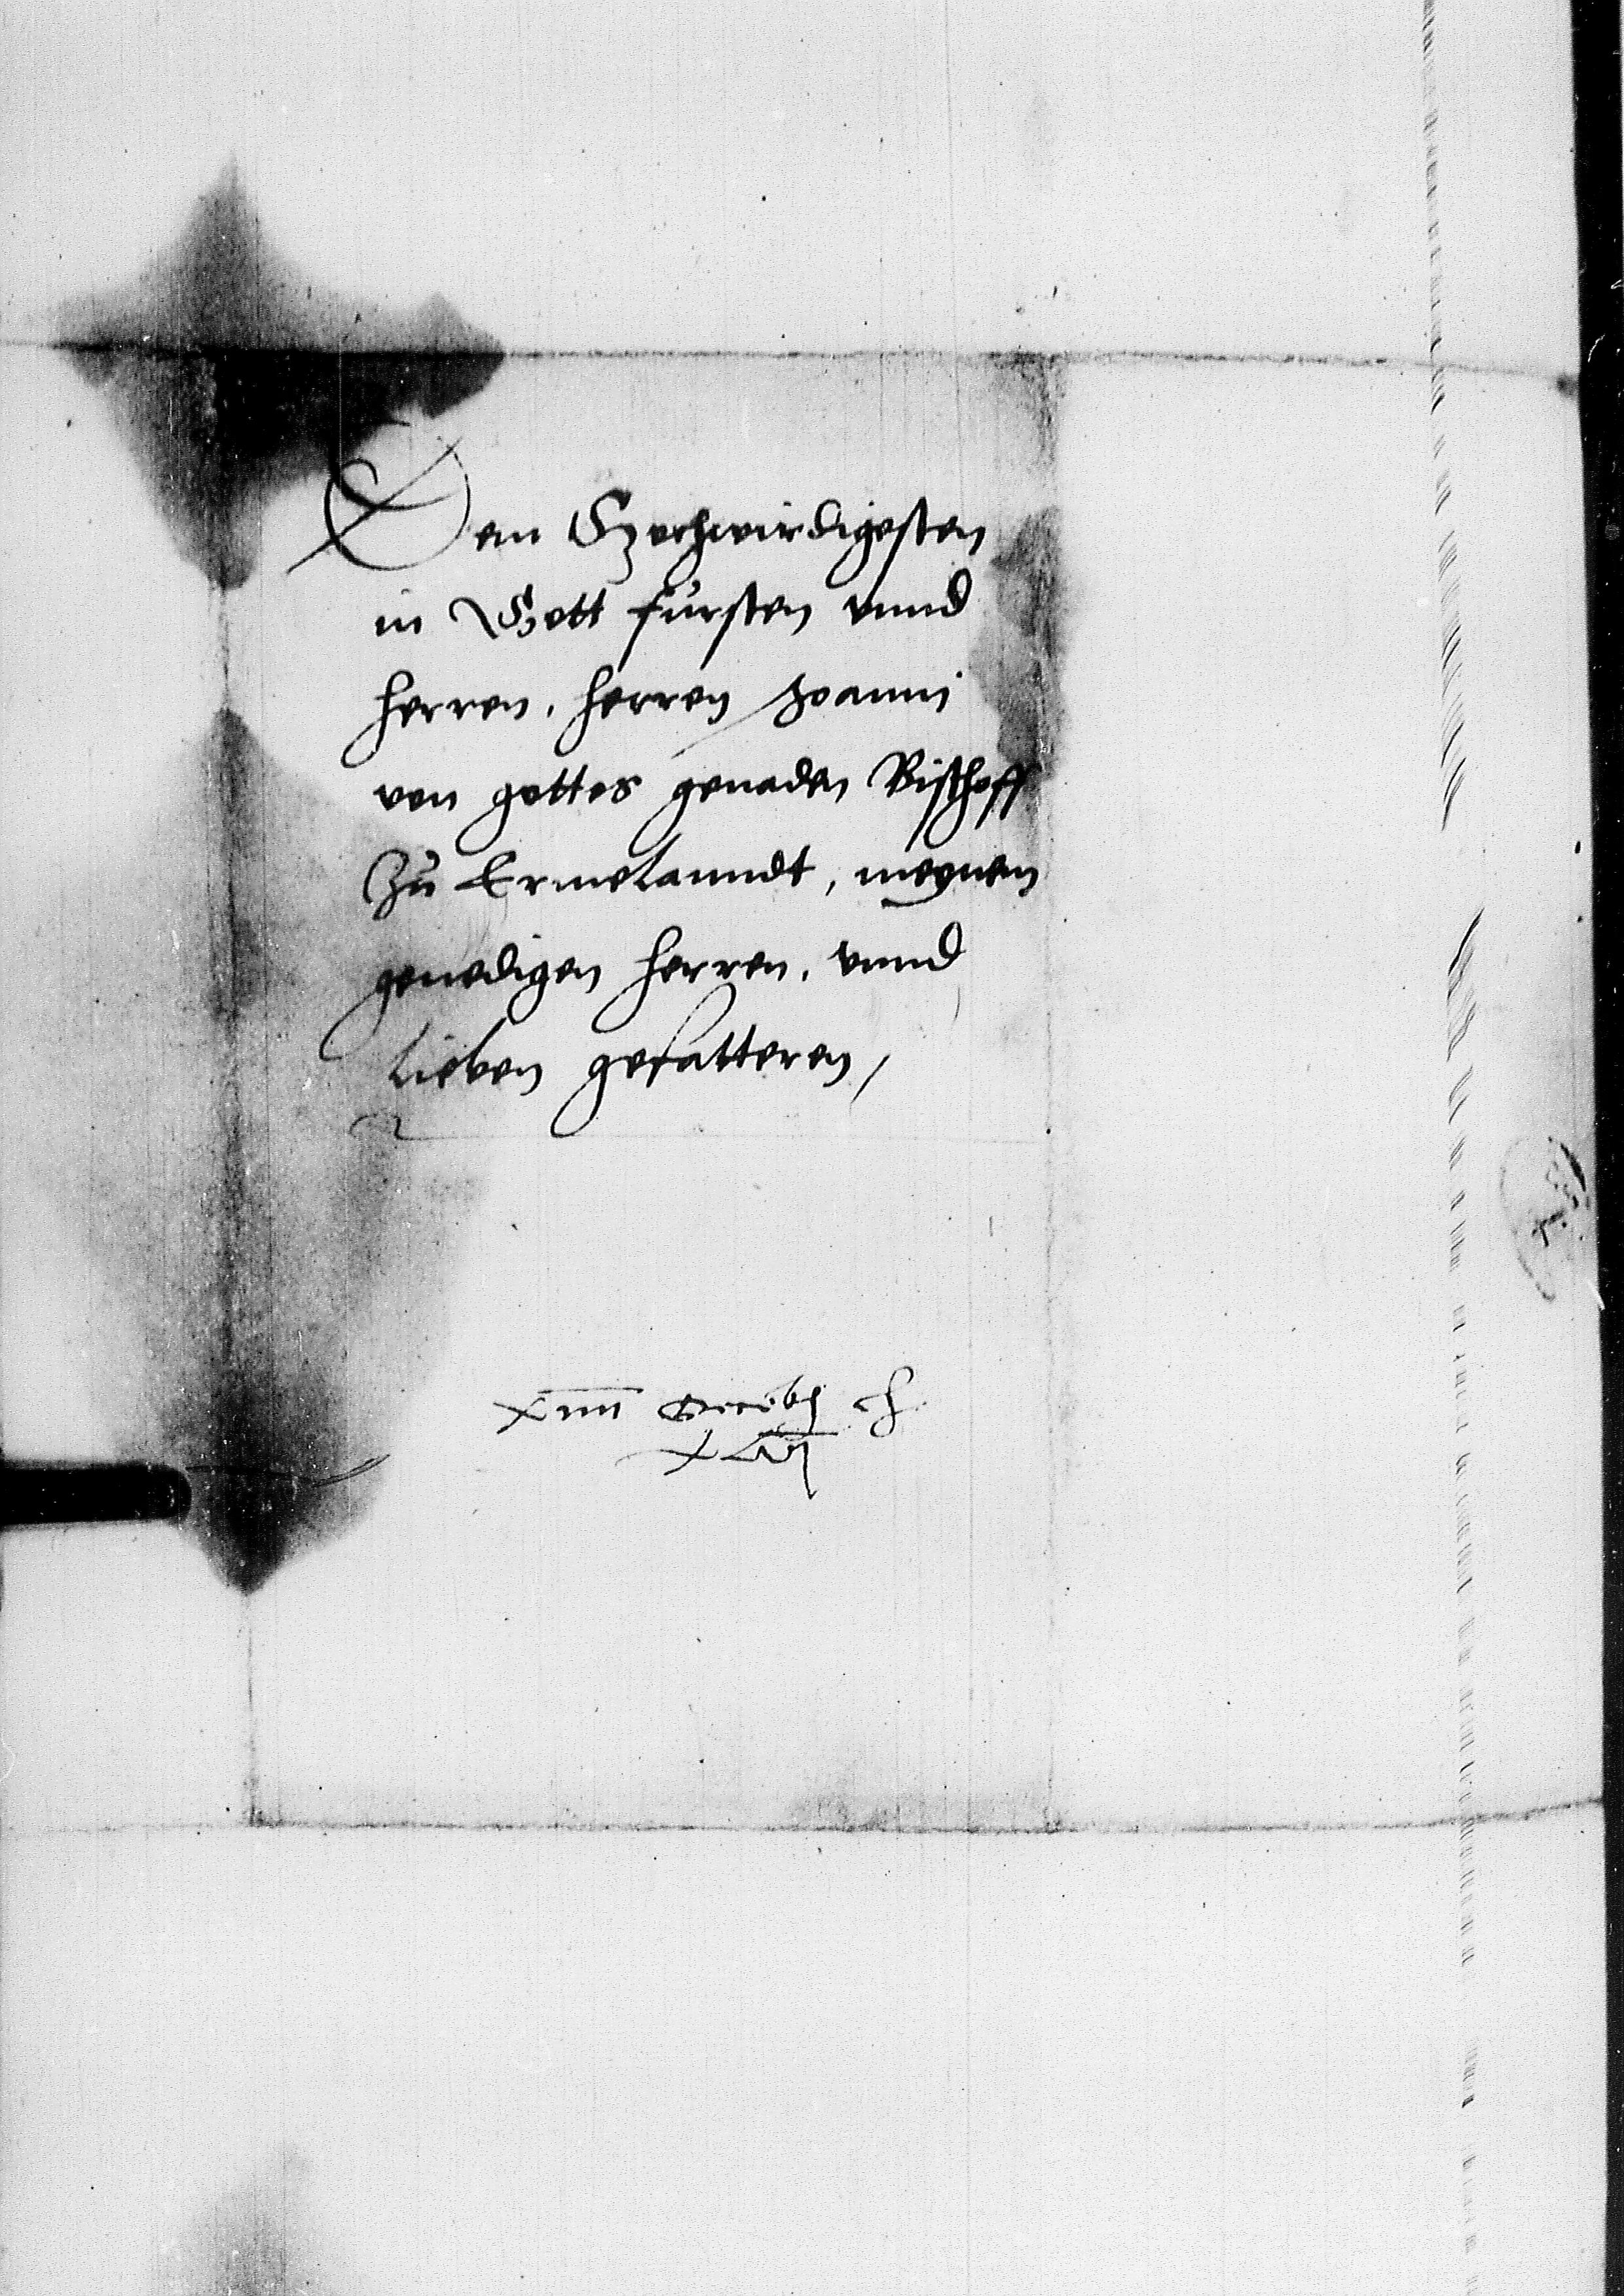 Dem Hochwirdigesten
in Gott fursten vnnd
herren, herren Joanni
von gottes genaden Bischoff
Zu Ermelanndt, meynem
genedigen herren, vnnd
lieben gefatteren,
xiiii Decēbr